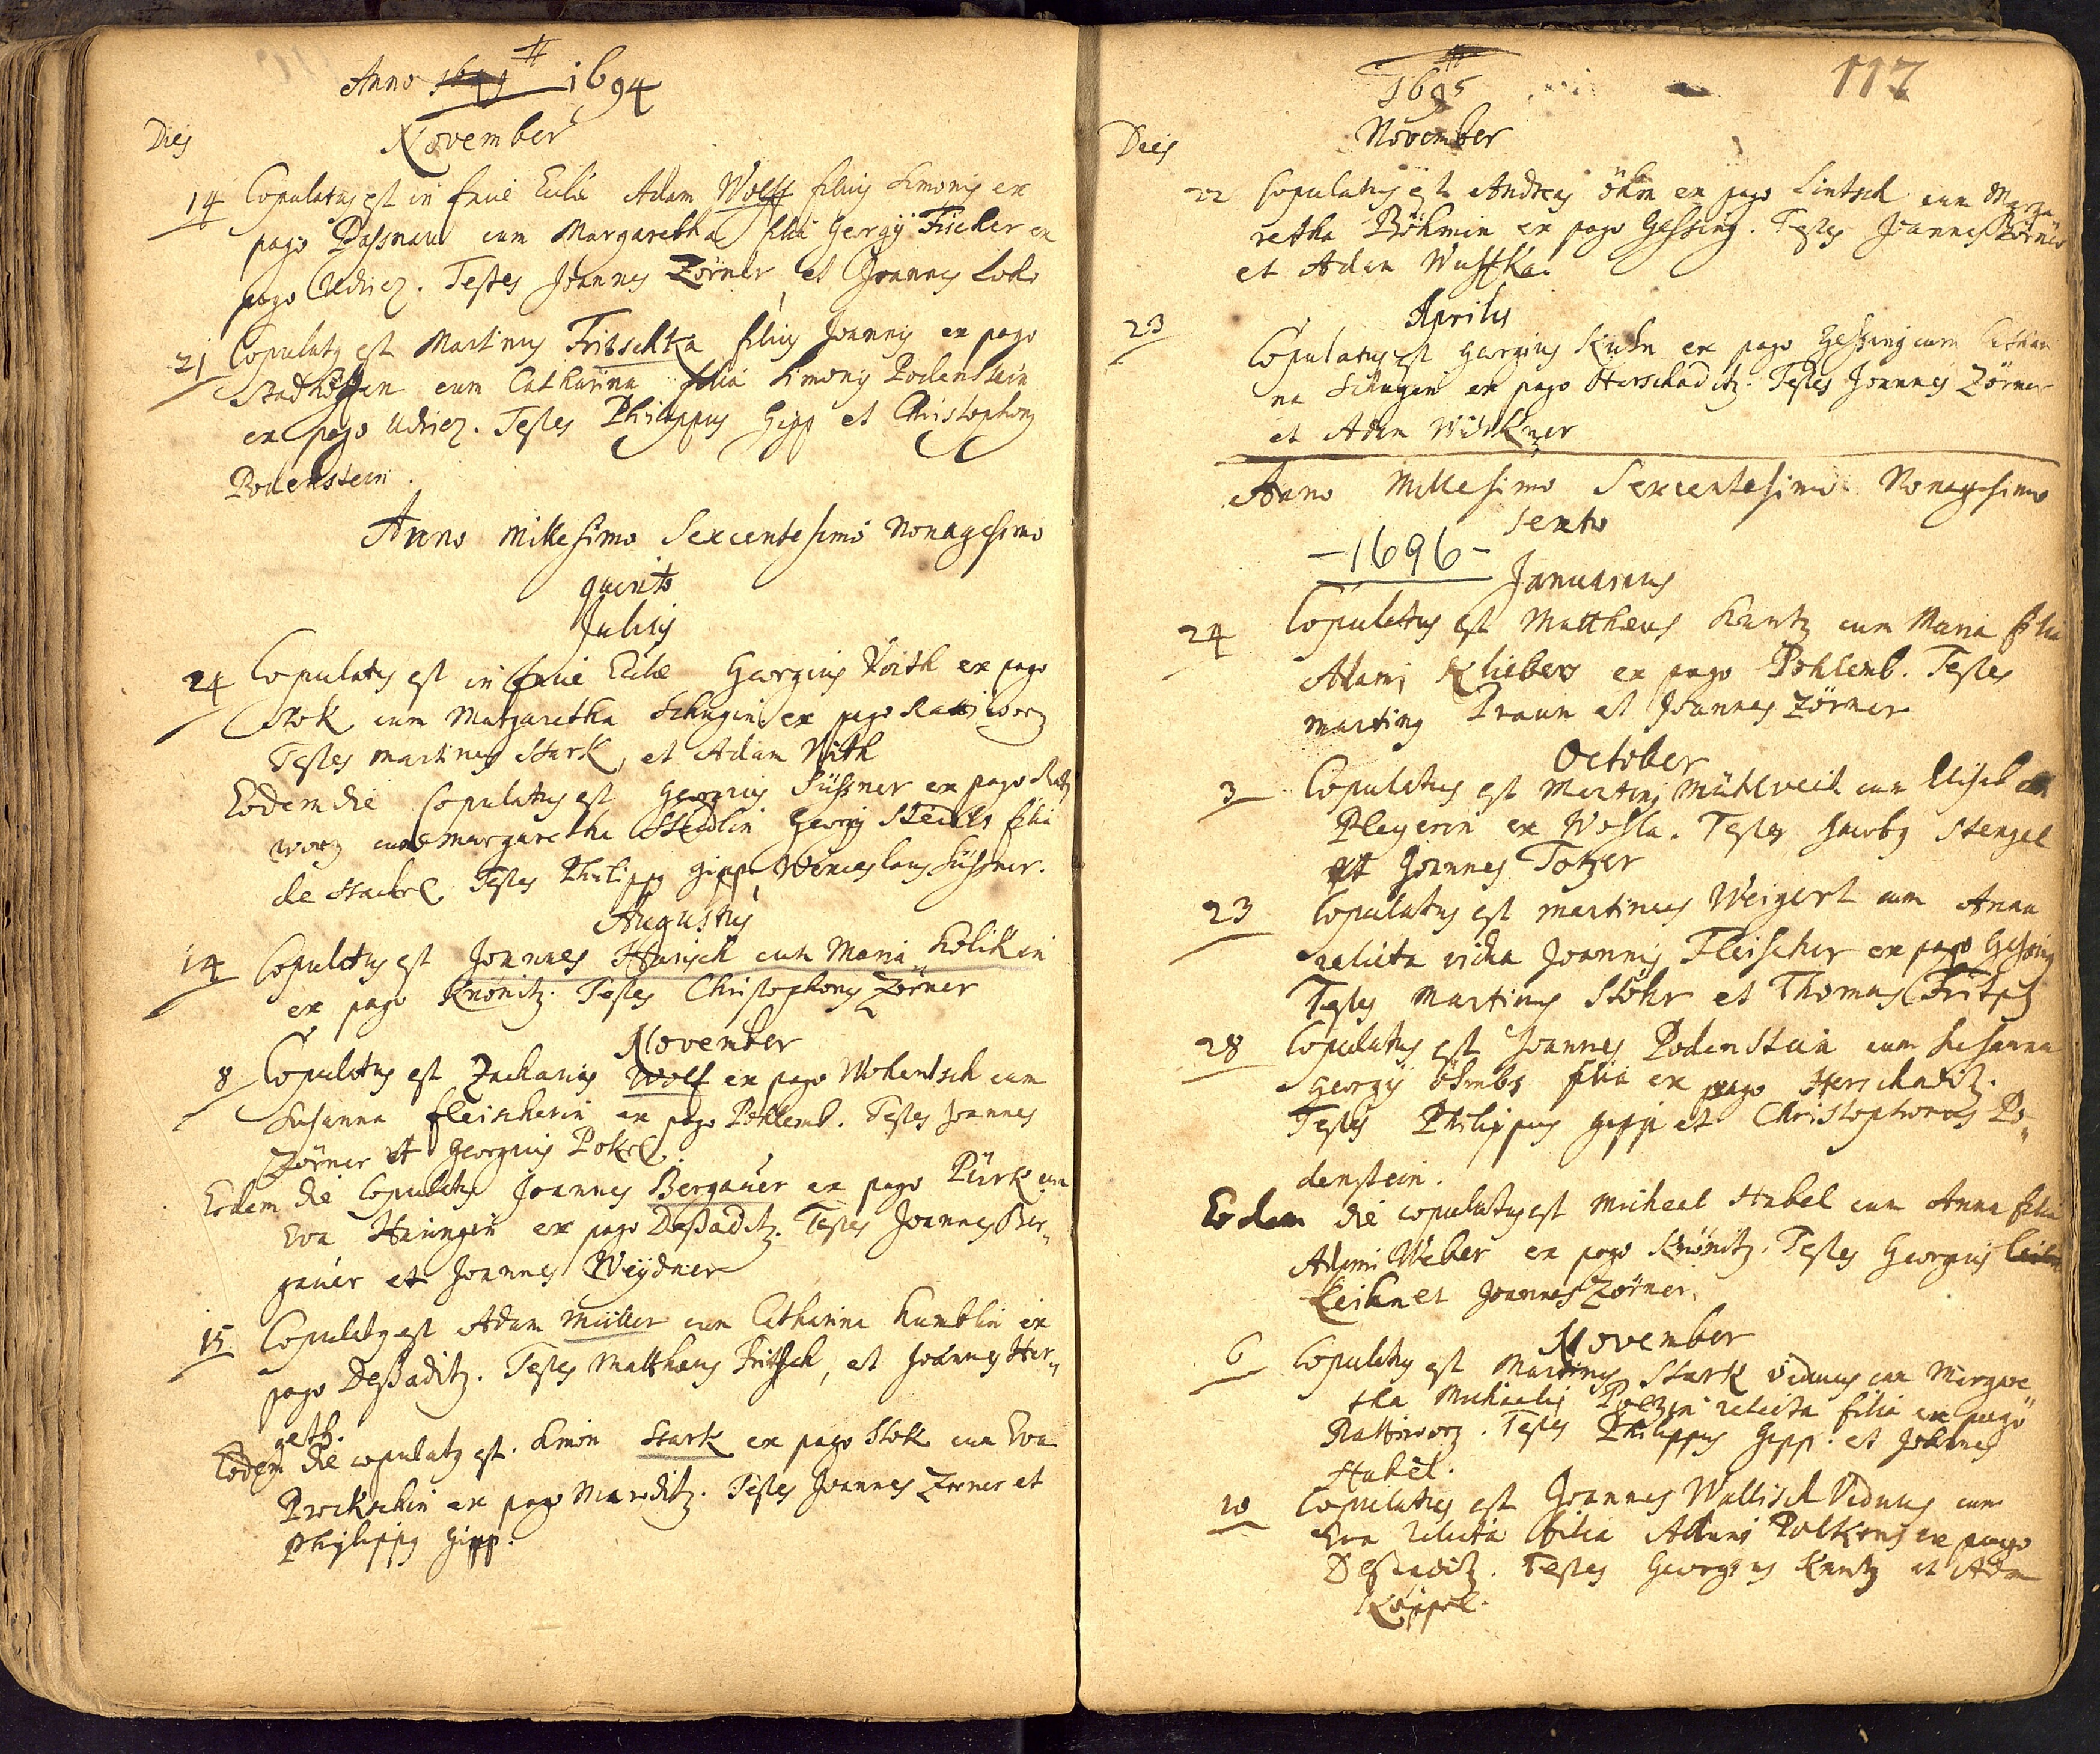 Anno 1694
November
Dies
14 Copulatus est in facie Eccliae Adam Wolff filius Simonis ex
pago Passnau cum Margaretha filia Georgij Fischer ex
pago Udricz. Testes Joannes Zörner et Joannes
21 Copulatus est Martinus Fritschka filius Joannis ex pago
Stadhöffen cum Catharina filia Simonis Podenstein
ex pago Udricz. Testes Philippus Gipp et Christophorus
Podenstein.
Anno Millesimo Sexcentesimo Nonagesimo
quinto
Julius
24 Copulatus est in facie Eccliae Georgius Voith ex pago
Stok cum Margaretha Schugin ex pago Rattiworz
Testes Martinus Stark, et Adam Voith
Eodem die Copulatus est Georgius Süssner ex pago Ratti
worz cum Margaretha Steidlin Georgij Steidls filia
de Testes Philippus Gipp, Wenceslaus Süssner.
Augustus
14 Copulatus est Joannes Harisch cum Maria Kolikin
ex pago Knönitz. Testes Christophorus Zörner
November
8 Copulatus est Zacharias Wolf ex pago Mokentsch cum
Susanna Fleischerin ex pago Pohlemb. Testes Joannes
Zörner et Georgius Pokel.
Eodem die Copulatus Joannes Bergauer ex pago Pürk cum
Eva Haningin ex pago Deßaditz. Testes Joannes Ber„
gauer et Joannes Weydner
15 Copulatus est Adam Müller cum Catharina Kumblin ex
pago Deßaditz. Testes Matthaeus Fritsch, et Joannes Her„
geth.
Eodem die copulatus est. Simon Stark ex pago Stok cum Eva
Prockschin ex pago Maroditz. Testes Joannes Zörner et
Philippus Gipp.
1695
117
November
Dies
22 Copulatus est Andreas Öhm ex pago Lintsch cum Marga
retha Böhmin ex pago Gessing. Testes Joannes Zörner
et Adam Wustka.
Aprilis
23
Copulatus est Georgius Kuhn ex pago Gessing cum Cathari
na Schugin ex pago Herschaditz. Testes Joannes Zörner
et Adam Würkner
Anno Millesimo Sexcentesimo Nonagesimo
Sexto
-1696-
Januarius
24 Copulatus est Matthaeus Kantz cum Maria filia
Adami Kliebers ex pago Pohlemb. Testes
Martinus Praum et Joannes Zörner
October
3 Copulatus est Martinus Mühlveit cum Elisab
Pleyerin ex Wohla. Testes Jacobus Stengel
et Joannes Totzer
23 Copulatus est Martinus Weigert cum Anna
relicta vidua Joannis Fleischer ex pago Gessing
Testes Martinus Stöhr et Thomas Fritsch
28 Copulatus est Joannes Podenstein cum Susanna
Georgij Öhmbs filia ex pago Herschaditz.
Testes Philippus Gipp et Christophorus Po„
denstein.
Eodem die copulatus est Michael Habel cum Anna filia
Adami Weber ex pago Knönitz. Testes Georgius
Keihn et Joannes Zörner.
November
6 Copulatus est Martinus Stark viduus cum Margare„
tha Michaelis Poltzin relicta filia ex pago
Rattiworz. Testes Philippus Gipp. et Joannes
Habel.
10 Copulatus est Joannes Wallisch Viduus cum
Eva relicta filia Adami Polkons ex pago
Deßaditz. Testes Georgius Kantz et Adam
Köppel.